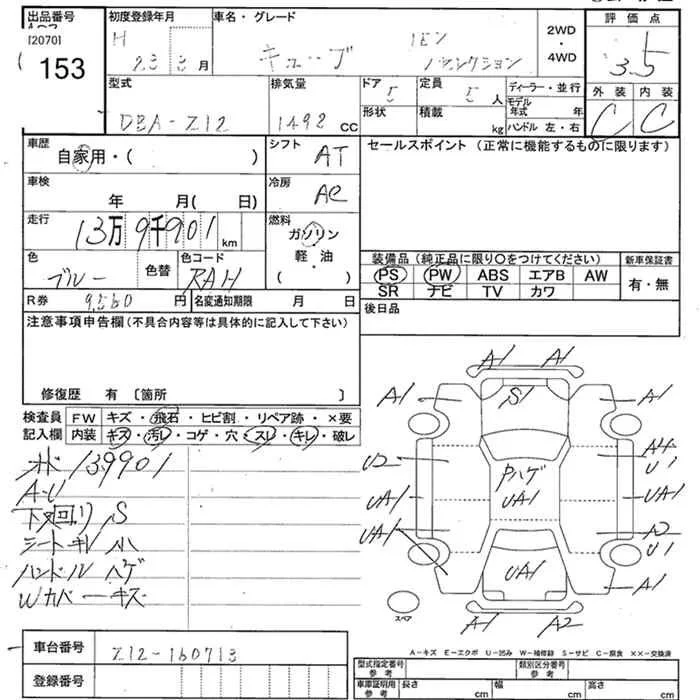 出品番号 初度登録年月 車名・グレード 評価点
[2070] H 15Mセレクション 2WD・4WD 3.5
153 23年3月 キューブ
型式 排気量 ドア 5 定員 5人 ディーラー・並行 外装 内装
DBA-Z12 1492 CC 形状 積載 kg モデル年式 年 C C
ハンドル 左・右
車歴 シフト セールスポイント(正常に機能するものに限ります)
自家用・( ) AT
車検 冷房
年 月( 日) AC
走行 燃料
13万9千901 km ガソリン
色 色コード 軽・油 装備品(純正品に限り○をつけてください) 新車保証書
ブルー 色替 RAH ( ) PS PW ABS エアB AW 有・無
SR ナビ TV カワ
R券 9,560円 名変通知期限 月 日 後日品
注意事項申告欄(不具合内容等は具体的に記入して下さい)
修復歴 有 〔箇所 〕
検査員 FW キズ・飛石・ヒビ割・リペア跡・×要
記入欄 内装 キズ・汚レ・コゲ・穴・スレ・キレ・破レ
139901
A-U
下廻り S
シートキレ 小
ハンドル ハゲ
Wカバーキズ
A1 A1
A1 S1 A1
U2 A4 U1
Pハゲ
UA1 UA1 UA1
UA1 A2 U1
UA1 A1
スペア A1 A2
車台番号 Z12-160713
登録番号
A-キズ E-エクボ U-凹み W-補修跡 S-サビ C-腐食 ××-交換済
型式指定番号 参考 類別区分番号 参考
車庫証明用 参考 長さ cm 幅 cm 高さ cm